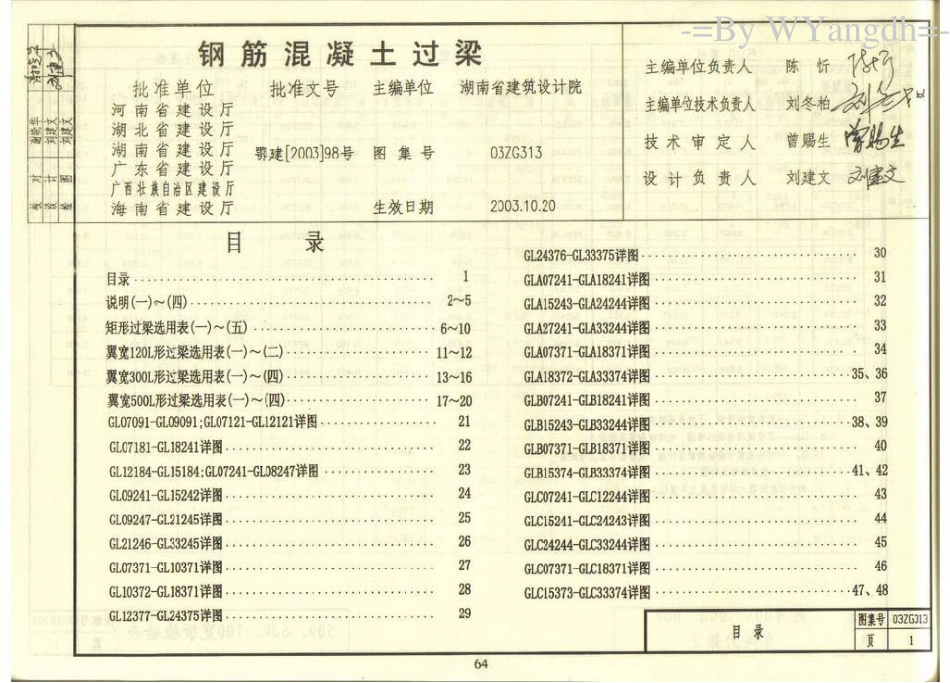 -=By WYangdh=-
钢筋混凝土过梁
批准单位 批准文号 主编单位 湖南省建筑设计院
河南省建设厅
湖北省建设厅
湖南省建设厅 鄂建[2003]98号 图集号 03ZG313
广东省建设厅
广西壮族自治区建设厅
海南省建设厅 生效日期 2003.10.20
主编单位负责人 陈忻
主编单位技术负责人 刘冬柏
技术审定人 曾赐生
设计负责人 刘建文
目 录
目录 1
说明(一)~(四) 2~5
矩形过梁选用表(一)~(五) 6~10
翼宽120L形过梁选用表(一)~(二) 11~12
翼宽300L形过梁选用表(一)~(四) 13~16
翼宽500L形过梁选用表(一)~(四) 17~20
GL07091-GL09091;GL07121-GL12121详图 21
GL07181-GL18241详图 22
GL12184-GL15184;GL07241-GL08247详图 23
GL09241-GL15242详图 24
GL09247-GL21245详图 25
GL21246-GL33245详图 26
GL07371-GL10371详图 27
GL10372-GL18371详图 28
GL12377-GL24375详图 29
GL24376-GL33375详图 30
GLA07241-GLA18241详图 31
GLA15243-GLA24244详图 32
GLA27241-GLA33244详图 33
GLA07371-GLA18371详图 34
GLA18372-GLA33374详图 35、36
GLB07241-GLB18241详图 37
GLB15243-GLB33244详图 38、39
GLB07371-GLB18371详图 40
GLB15374-GLB33374详图 41、42
GLC07241-GLC12244详图 43
GLC15241-GLC24243详图 44
GLC24244-GLC33244详图 45
GLC07371-GLC18371详图 46
GLC15373-GLC33374详图 47、48
目 录 图集号 03ZG313
页 1
64